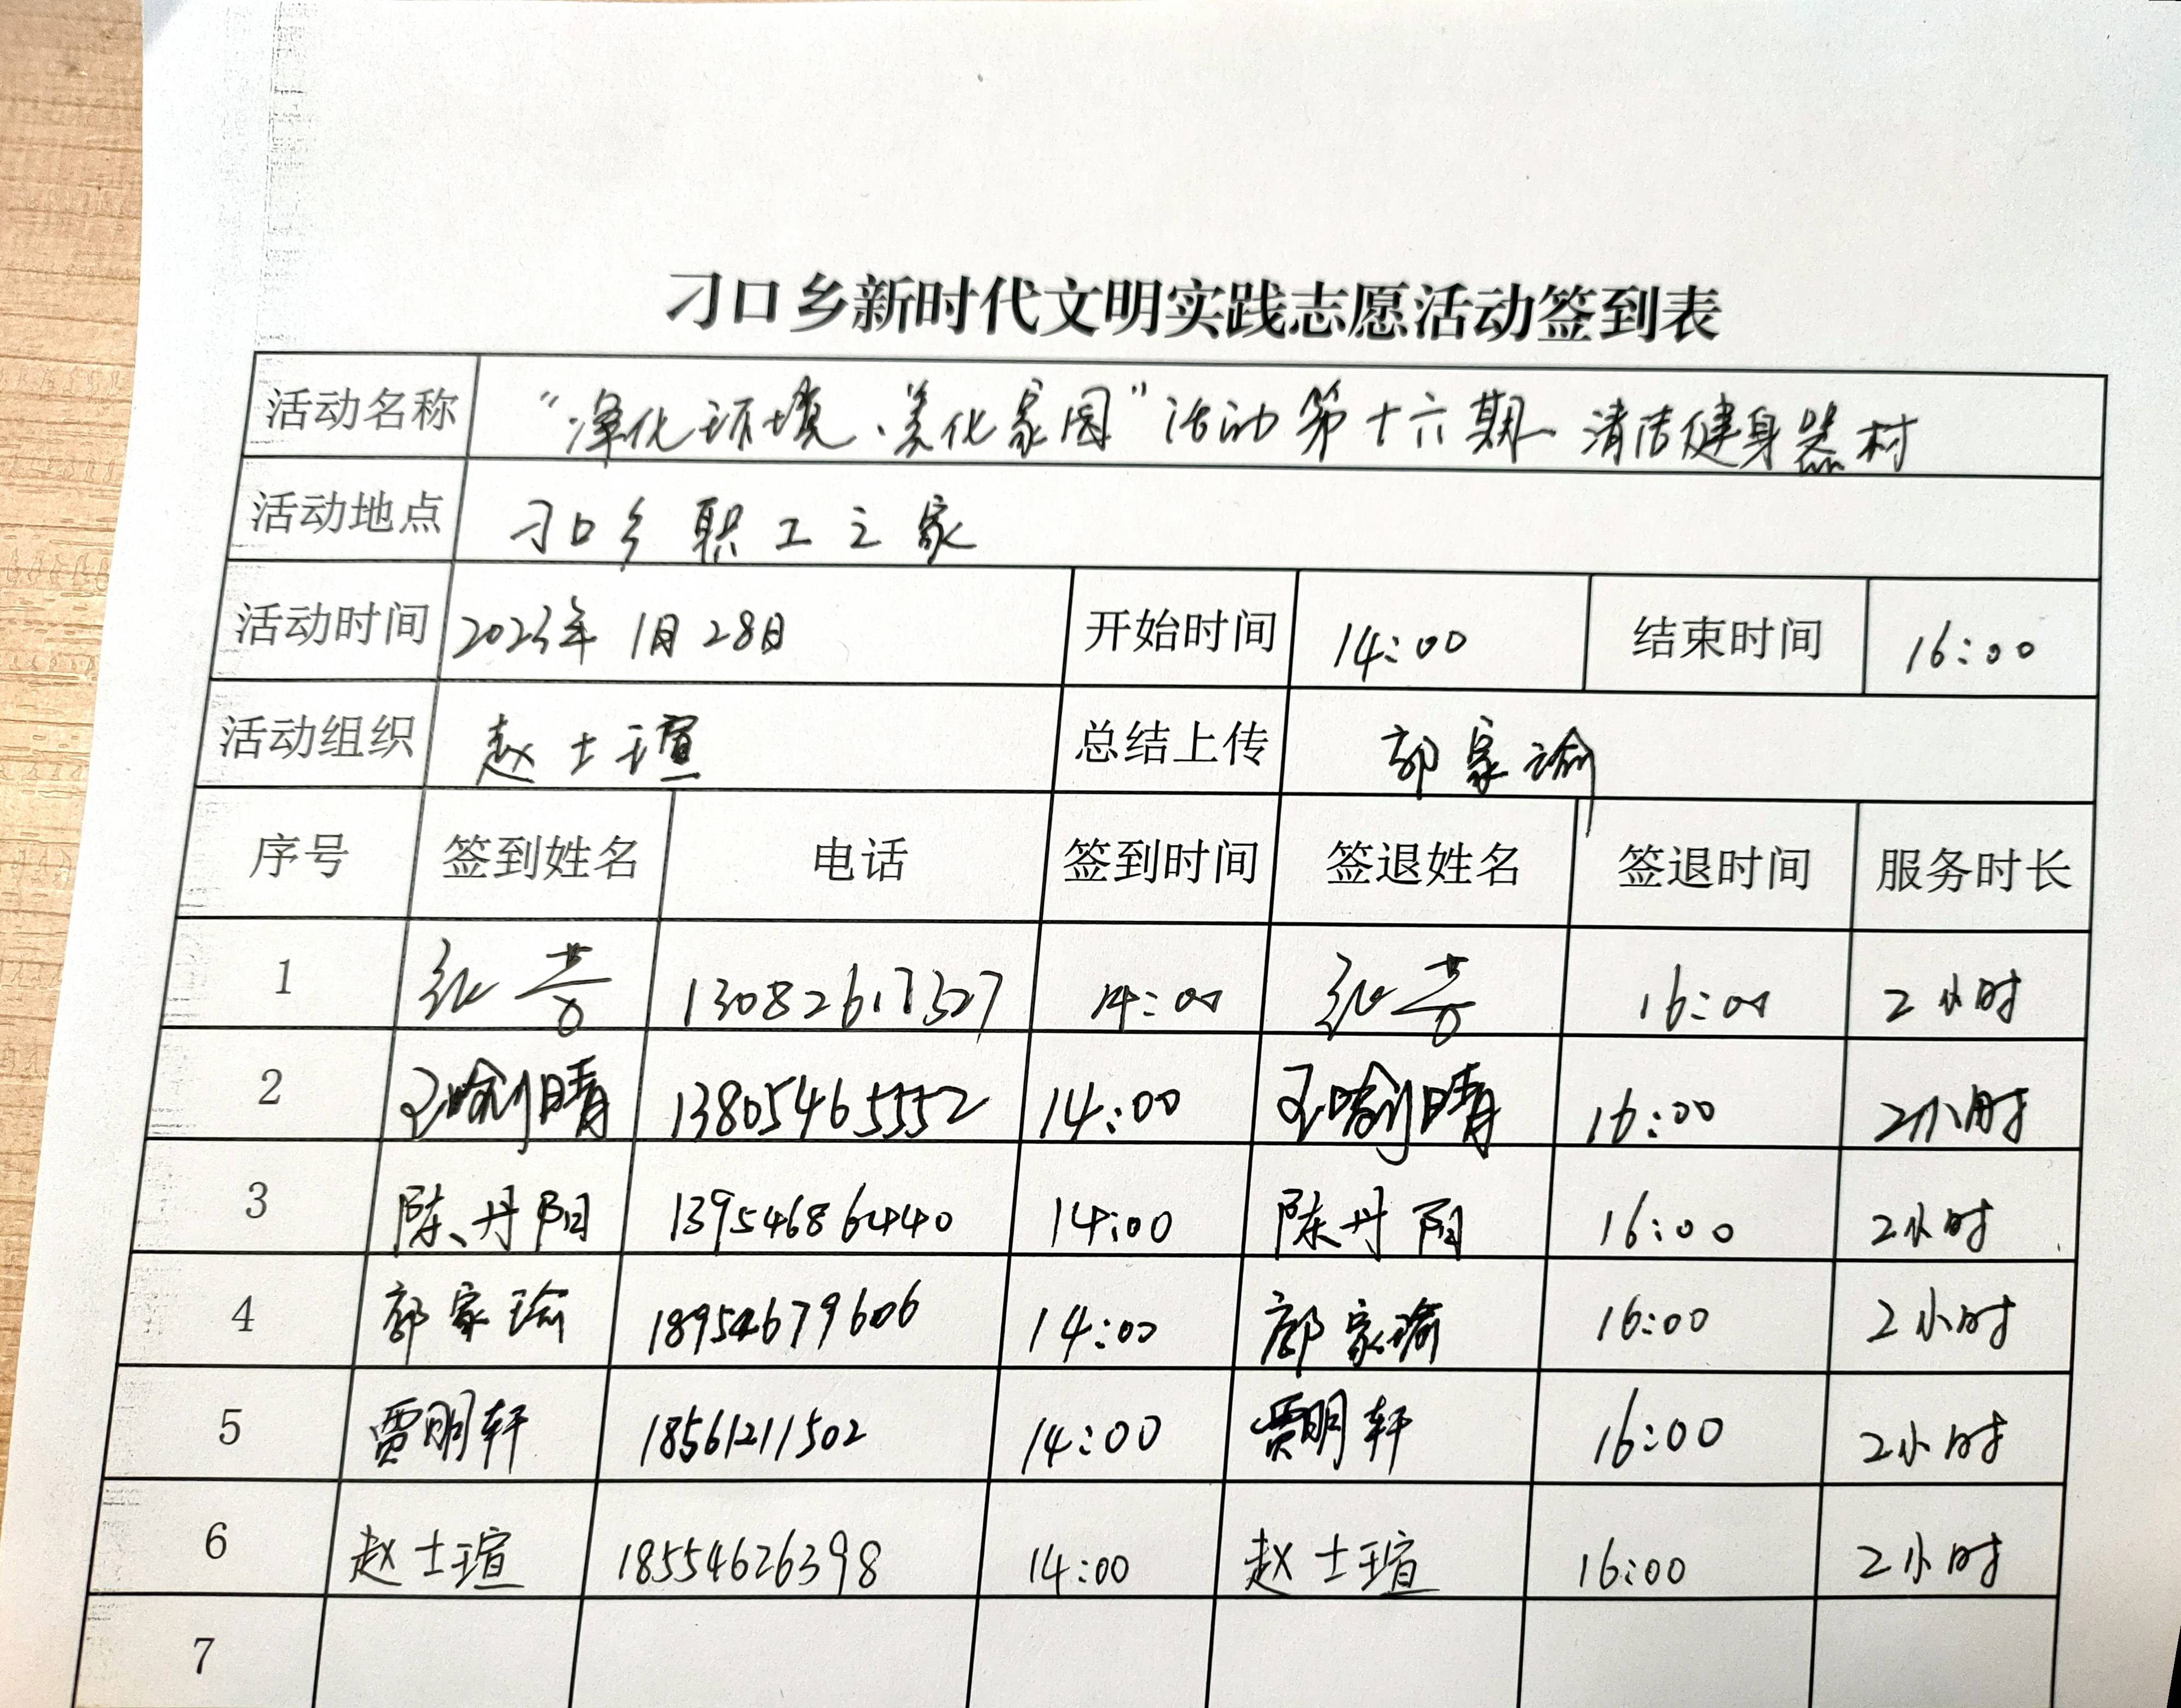 刁口乡新时代文明实践志愿活动签到表
活动名称 “净化环境、美化家园”活动第十六期—清洁健身器材
活动地点 刁口乡职工之家
活动时间 2023年1月28日 开始时间 14:00 结束时间 16:00
活动组织 赵士瑄 总结上传 郭家瑜
序号 签到姓名 电话 签到时间 签退姓名 签退时间 服务时长
1 张芳 13082617527 14:00 张芳 16:00 2小时
2 王喻晴 13805465552 14:00 王喻晴 16:00 2小时
3 陈丹阳 13954686440 14:00 陈丹阳 16:00 2小时
4 郭家瑜 18954679606 14:00 郭家瑜 16:00 2小时
5 贾明轩 18561211502 14:00 贾明轩 16:00 2小时
6 赵士瑄 18554626398 14:00 赵士瑄 16:00 2小时
7